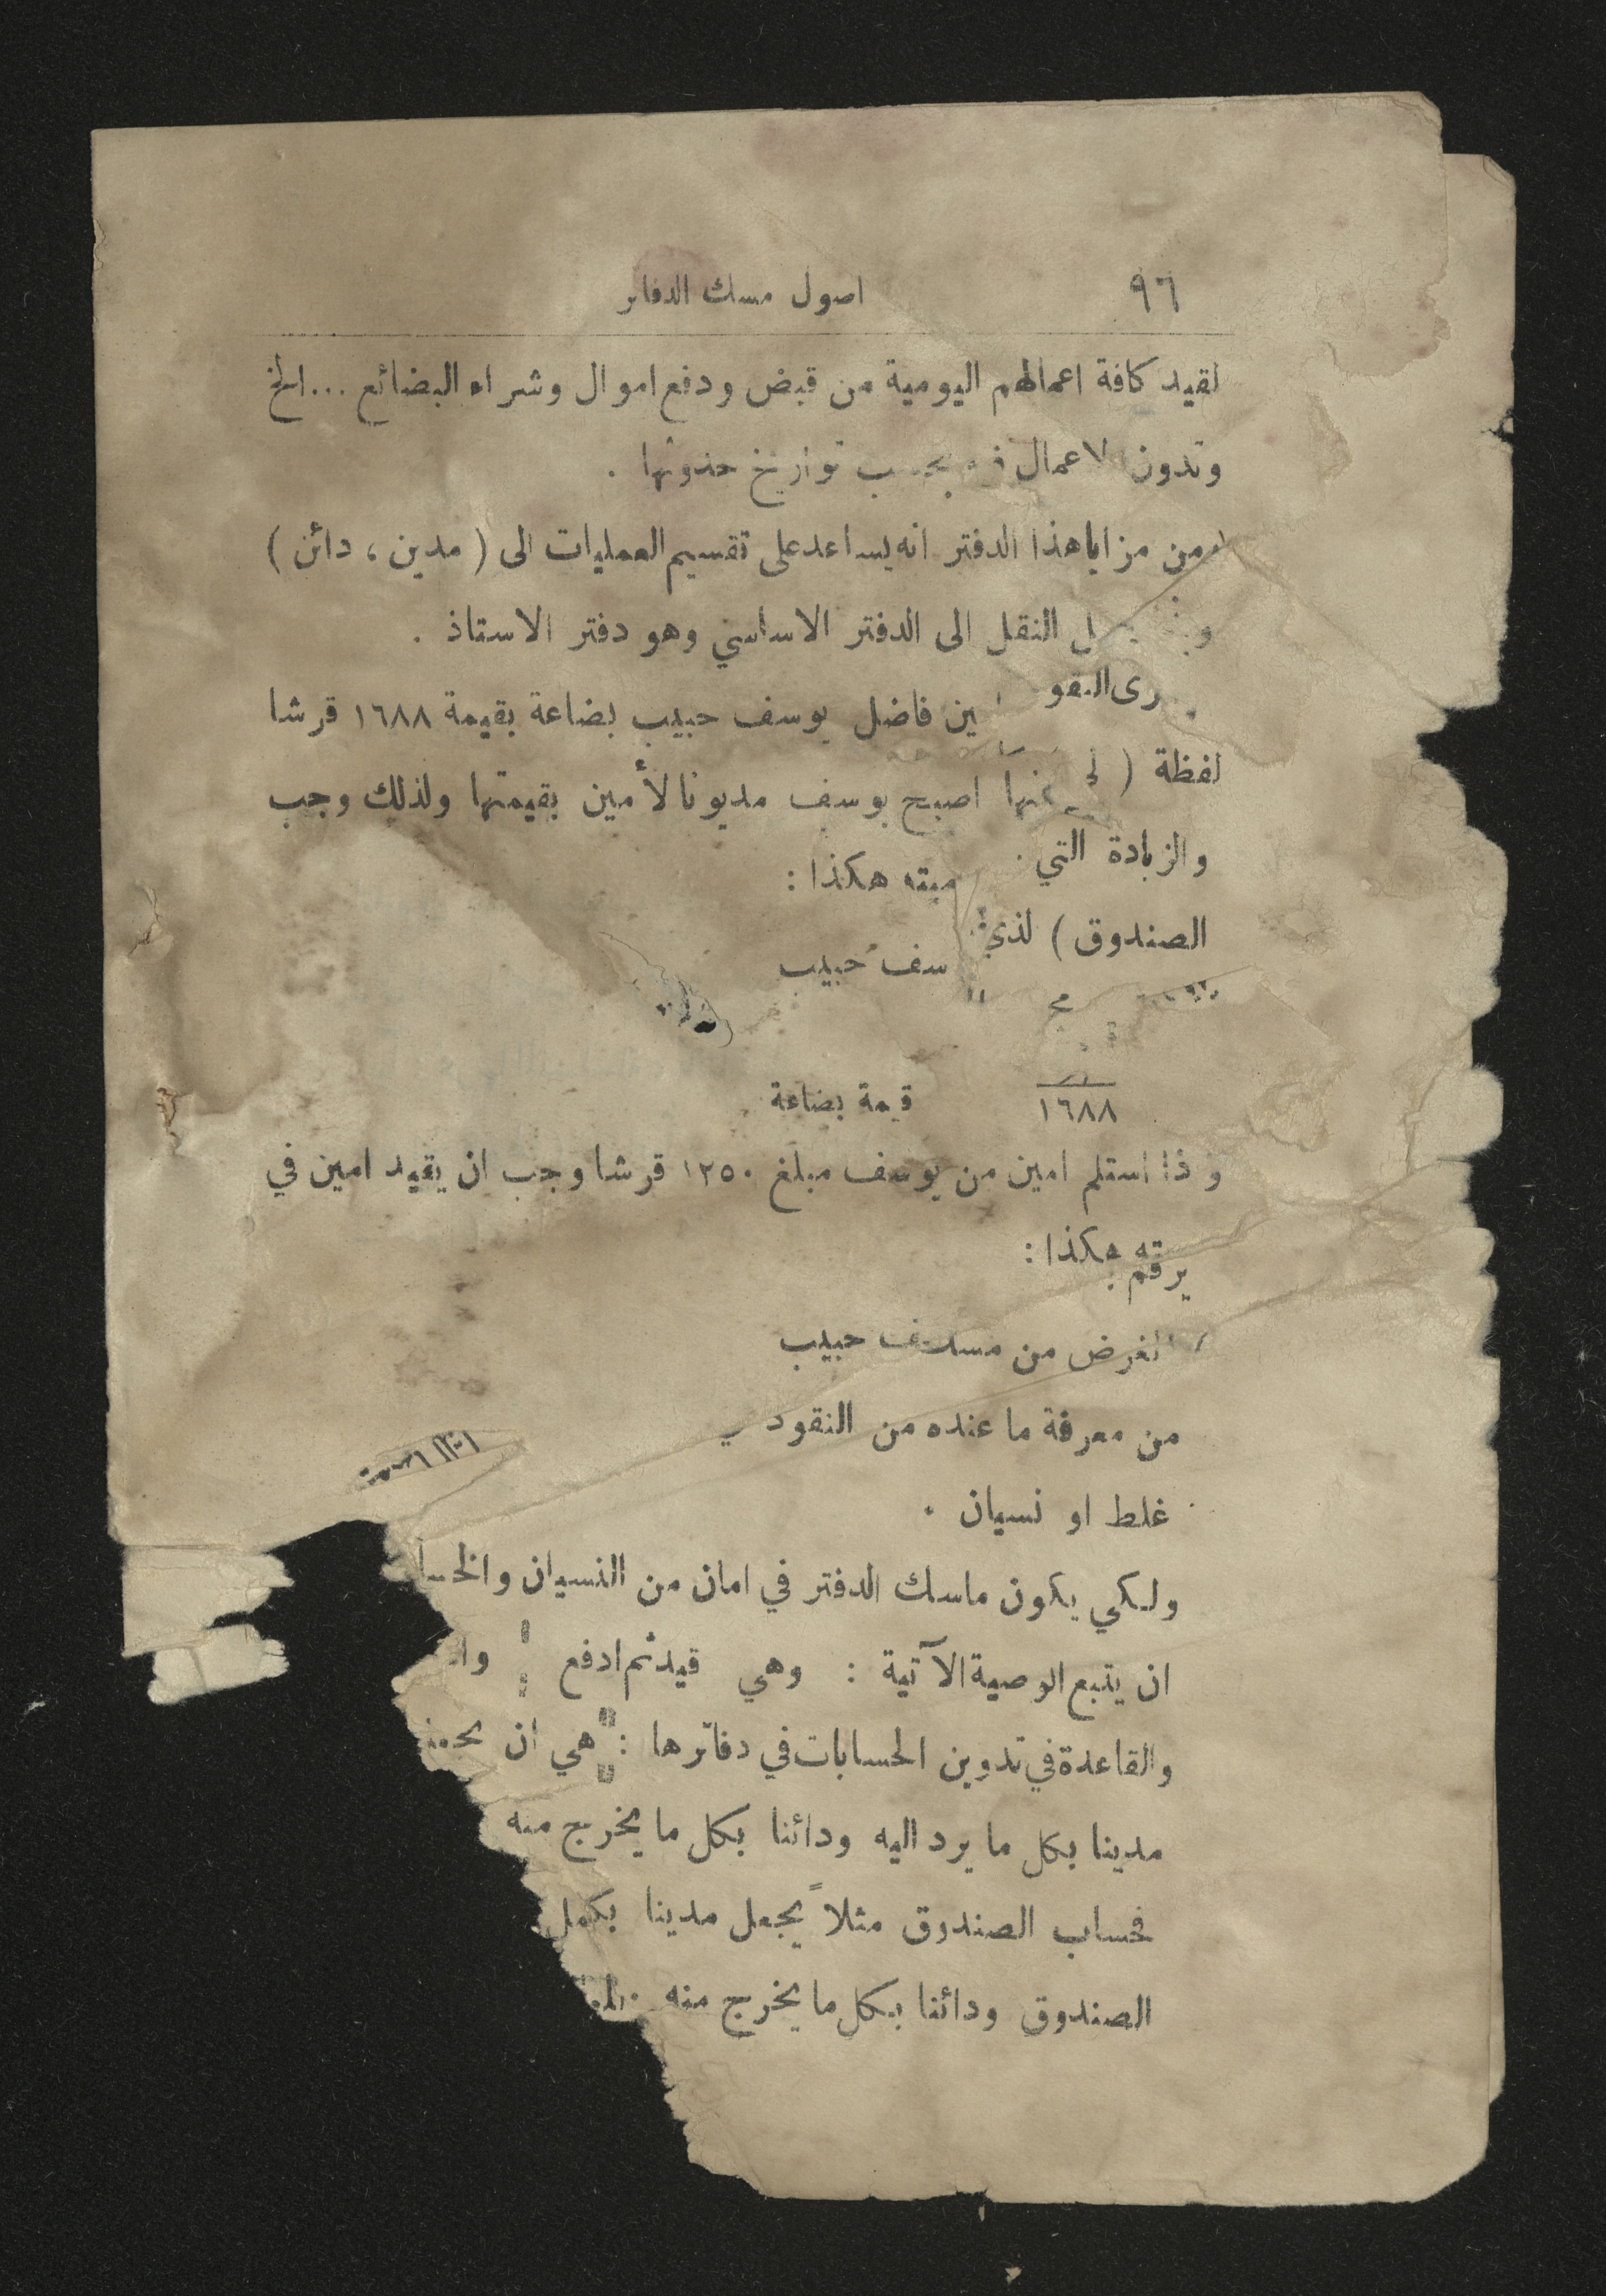 ٩٦ اصول مسك الدفاتر
لقيد كافة اعمالهم اليومية من قبض ودفع اموال وشراء البضائع ... الخ
وتدون الاعمال بحسب تواريخ حدوثها .
ومن مزايا هذا الدفتر انه يساعد على تقسيم العمليات الى ( مدين ، دائن )
النقل الى الدفتر الاساسي وهو دفتر الاستاذ .
فاضل يوسف حبيب بضاعة بقيمة ١٦٨٨ قرشا
لفظة ( اصبح يوسف مديونا لأمين بقيمتها ولذلك وجب
والزيادة التي هكذا :
الصندوق ) حبيب
١٦٨٨ قيمة بضاعة
استلم امين من يوسف مبلغ ١٢٥٠ قرشا وجب ان يقيد امين في
هكذا :
الغرض من حبيب
من معرفة ما عنده من النقود
غلط او نسيان .
ولكي يكون ماسك الدفتر في امان من النسيان
ان يتبع الوصية الآتية : وهي قيد ثم ادفع
والقاعدة في تدوين الحسابات في دفاترها : هي ان
مدينا بكل ما يرد اليه ودائنا بكل ما يخرج منه
فحساب الصندوق مثلاً يجعل مدينا بكل
الصندوق ودائنا بكل ما يخرج منه